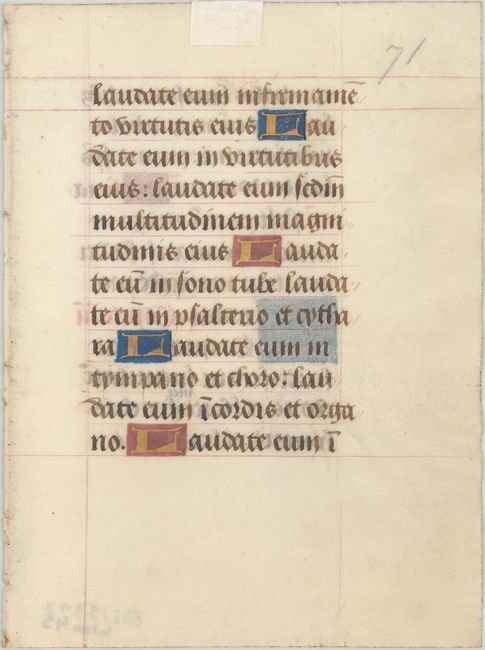 71
laudate eum in firmamē
to virtutis eius Lau
date eum in virtutibus
eius: laudate eum scdm̄
multitudinem magni
tudinis eius Lauda
te eū in sono tube lauda
te eū in psalterio et cytha
ra Laudate eum in
tympano et choro: lau
date eum ī cordis et orga
no. Laudate eum ī